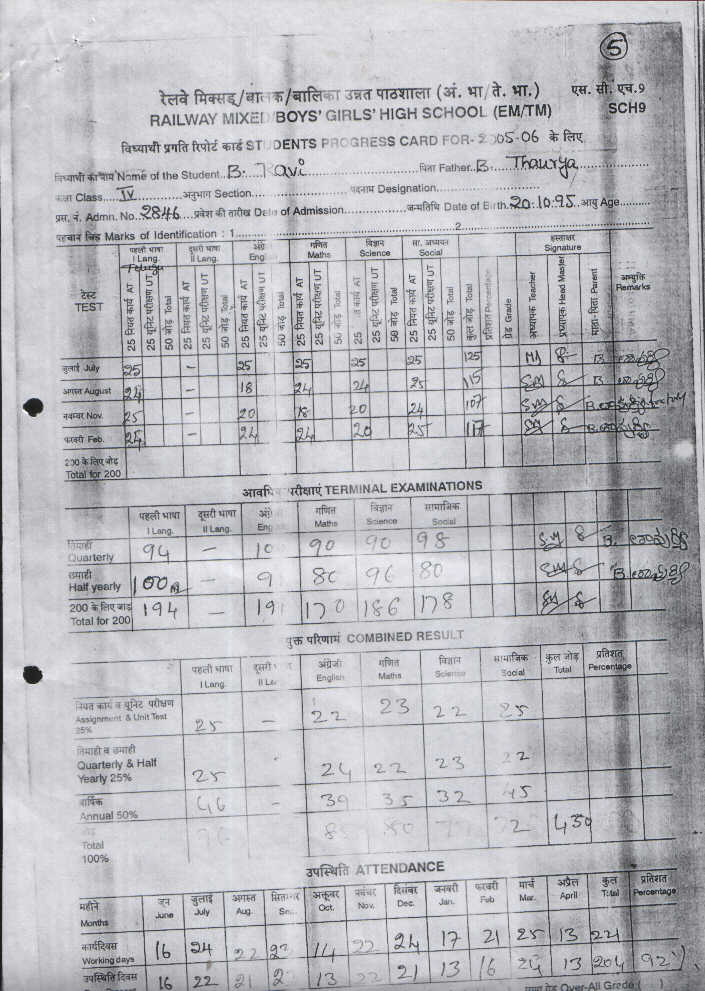 5
रेलवे मिक्सड़/बालक/बालिका उन्नत पाठशाला (अं. भा/ते. भा.) एस. सी. एच.9
RAILWAY MIXED/BOYS' GIRLS' HIGH SCHOOL (EM/TM) SCH9
विद्यार्थी प्रगति रिपोर्ट कार्ड STUDENTS PROGRESS CARD FOR- 2005-06 के लिए
विद्यार्थी का नाम Name of the Student.. B. Ravi पिता Father.. B. Thaurya
कक्षा Class IV अनुभाग Section पदनाम Designation
प्रस. नं. Admn. No. 2846 प्रवेश की तारीख Date of Admission जन्मतिथि Date of Birth. 20.10.95. आयु Age
पहचान चिह्न Marks of Identification : 1 2
पहली भाषा दूसरी भाषा गणित विज्ञान सा. अध्ययन हस्ताक्षर
I Lang. II Lang. Eng Maths Science Social Signature
Telugu
टेस्ट TEST 25 नियत कार्य AT 25 यूनिट परीक्षण UT 50 जोड़ Total 25 नियत कार्य AT 25 यूनिट परीक्षण UT 50 जोड़ Total 25 नियत कार्य AT 25 यूनिट परीक्षण UT 50 जोड़ Total 25 नियत कार्य AT 25 यूनिट परीक्षण UT 50 जोड़ Total 25 AT 25 यूनिट परीक्षण UT 50 जोड़ Total 25 नियत कार्य AT 25 यूनिट परीक्षण UT 50 जोड़ Total कुल जोड़ Total प्रतिशत Percentage ग्रेड Grade अध्यापक Teacher प्रध्यापक Head Master माता-पिता Parent अभ्युक्ति Remarks
जुलाई July 25 – 25 25 25 25 125
अगस्त August 24 – 18 24 24 25 115
नवम्बर Nov. 25 – 20 18 20 24 107
फरवरी Feb. 25 – 24 24 20 25 117
200 के लिए जोड़
Total for 200
परीक्षाएं TERMINAL EXAMINATIONS
पहली भाषा दूसरी भाषा गणित विज्ञान सामाजिक
I Lang. II Lang. Eng Maths Science Social
तिमाही
Quarterly 94 – 10 90 90 98
छमाही
Half yearly 100 – 9 80 96 80
200 के लिए जोड़
Total for 200 194 – 191 170 186 178
युक्त परिणाम COMBINED RESULT
पहली भाषा अंग्रेजी गणित विज्ञान सामाजिक कुल जोड़ प्रतिशत
I Lang. English Maths Science Social Total Percentage
नियत कार्य व यूनिट परीक्षण
Assignment & Unit Test
25% 25 – 22 23 22 25
तिमाही व छमाही
Quarterly & Half
Yearly 25% 25 24 22 23 22
वार्षिक
Annual 50% 46 – 39 35 32 45
Total
100% 96 85 80 430
उपस्थिति ATTENDANCE
महीने जून जुलाई अगस्त सितम्बर अक्तूबर नवंबर दिसंबर जनवरी फरवरी मार्च अप्रैल कुल प्रतिशत
Months June July Aug. Oct. Nov. Dec. Jan. Feb Mar. April Total Percentage
कार्यदिवस
Working days 16 24 22 23 14 22 24 17 21 25 13 221
उपस्थिति दिवस 16 22 21 13 22 21 13 16 24 13 204 92%
Over-All Grade ( )